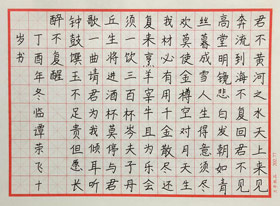 君不黄河之水天上来见
奔流到海不复回君不见
高堂明镜悲白发朝如青
丝暮成雪人生得意须尽
欢莫使金樽空对月天生
我材必有用千金散尽还
复来烹羊宰牛且为乐会
须一饮三百杯岑夫子丹
丘生将进酒杯莫停与君
歌一曲请君为我倾耳听
钟鼓馔玉不足贵但愿长
醉不复醒
丁酉年冬临谭荣飞十
岁书